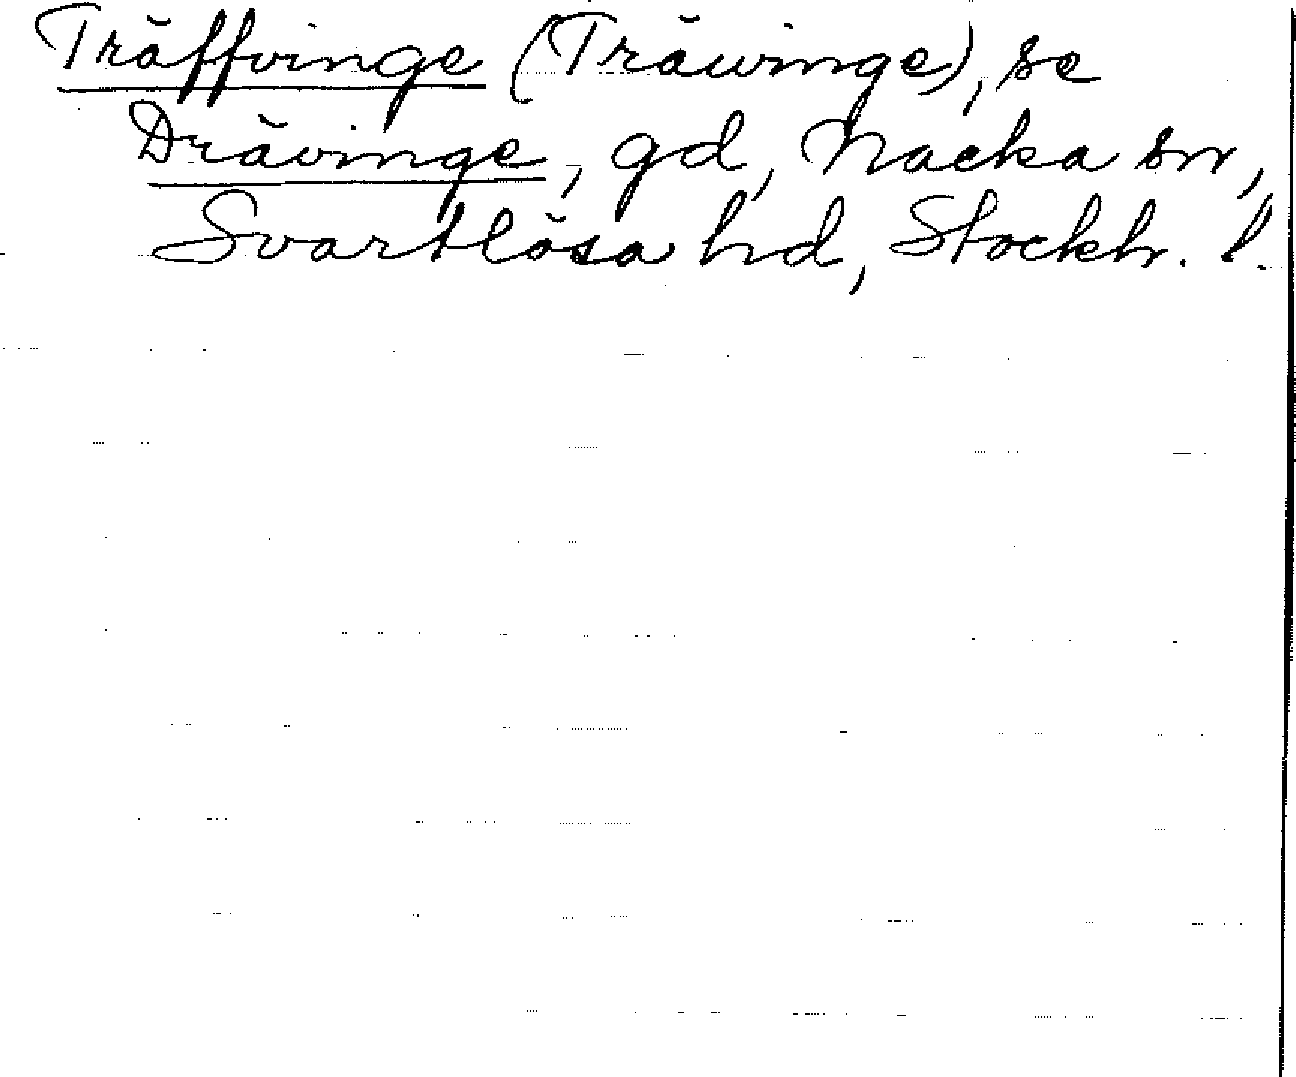 Träffvinge (Träwinge), se
Drävinge, gd, Nacka sn,
Svartlösa hd, Stockh. l.